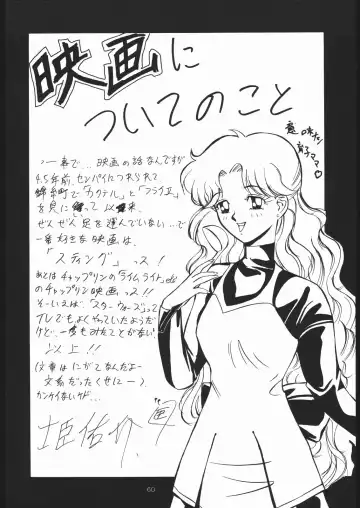 映画に
ついてのこと
意味ナシ
育子ママ♡
つー事で…映画の話なんですが
4.5年前、センパイにつれられて
錦糸町で「カクテル」と「フライII」
を見に行って以来、
ぜんぜん足を運んでいない…で
一番好きな映画は、
「スティング」っス!
あとはチャップリンの「ライムライト」とか
のチャップリン映画っス!!
そーいえば、「スターウォーズ」って
TVでもよくやっていたようだ
けど…一度もみたことがない!
以上!!
(文章はにがてなんだよー
文系だったくせにー)
カンケイないケド…
臣佑
60